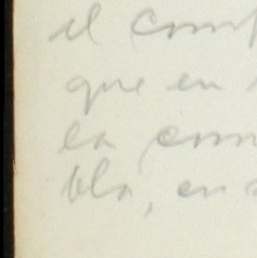 el com
que en
la com
blo, en